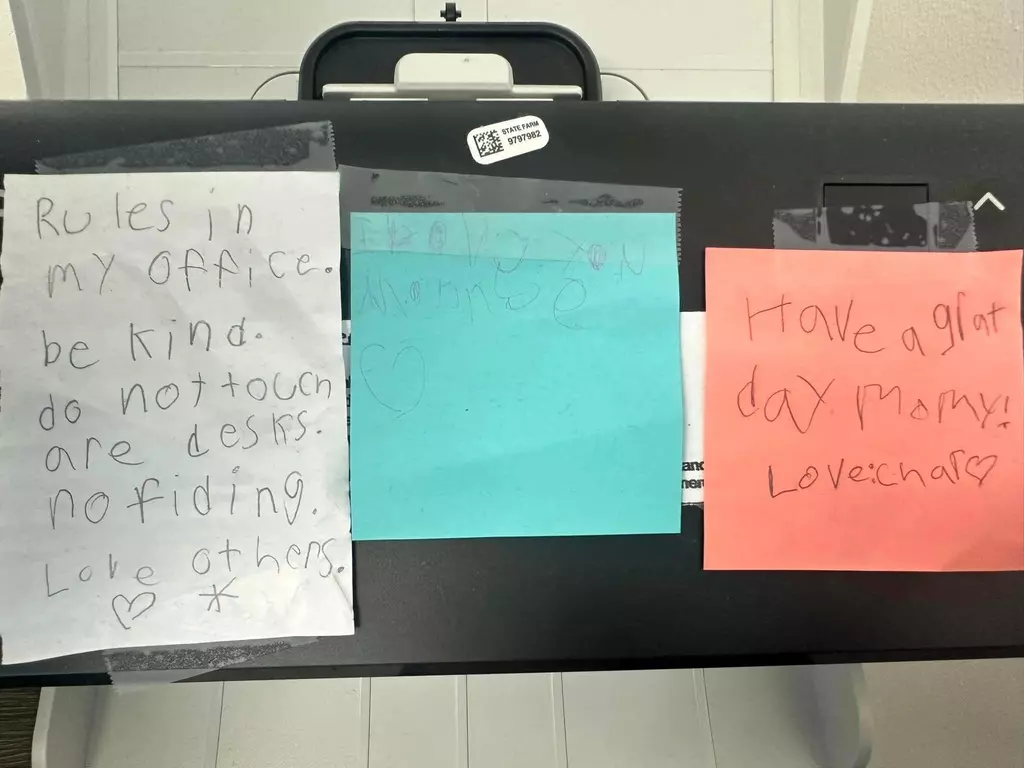 STATE FARM
9797982
Rules in
my office.
be kind.
do not touch
are desks.
no fiding.
Love others.
Have a grat
day Momy!
Love:char